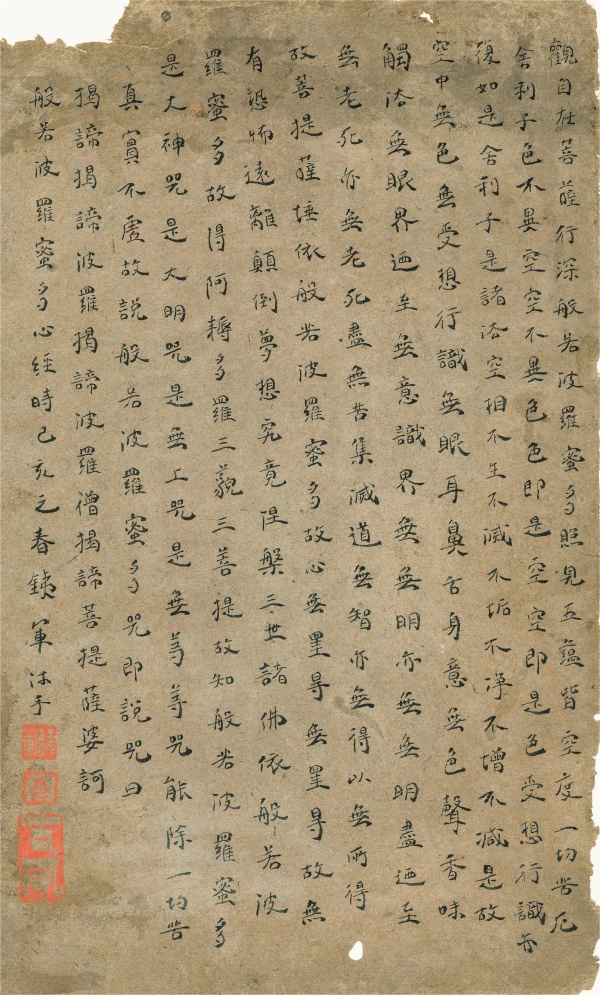 觀自在菩薩行深般若波羅蜜多照見五蘊皆空度一切苦厄
舍利子色不異空空不異色色即是空空即是色受想行識亦
復如是舍利子是諸法空相不生不滅不垢不淨不增不減是故
空中無色無受想行識無眼耳鼻舌身意無色聲香味
觸法無眼界迺至無意識界無無明亦無無明盡迺至
無老死亦無老死盡無苦集滅道無智亦無得以無所得
故菩提薩埵依般若波羅蜜多故心無罣㝵無罣㝵故無
有恐怖遠離顛倒夢想究竟涅槃三世諸佛依般若波
羅蜜多故得阿耨多羅三藐三菩提故知般若波羅蜜多
是大神咒是大明咒是無上咒是無等等咒能除一切苦
真實不虛故說般若波羅蜜多咒即說咒曰
揭諦揭諦波羅揭諦波羅僧揭諦菩提薩婆訶
般若波羅蜜多心經時己亥之春銕軍沐手